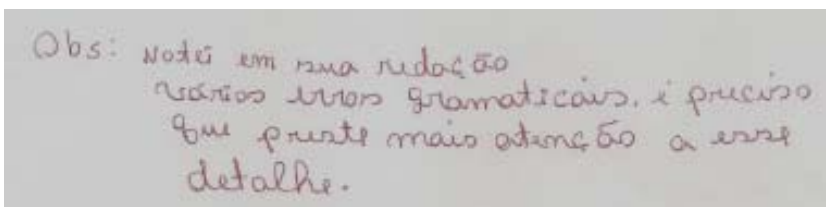 Obs: Notei em sua redação
vários erros gramaticais. é preciso
que preste mais atenção a esse
detalhe.